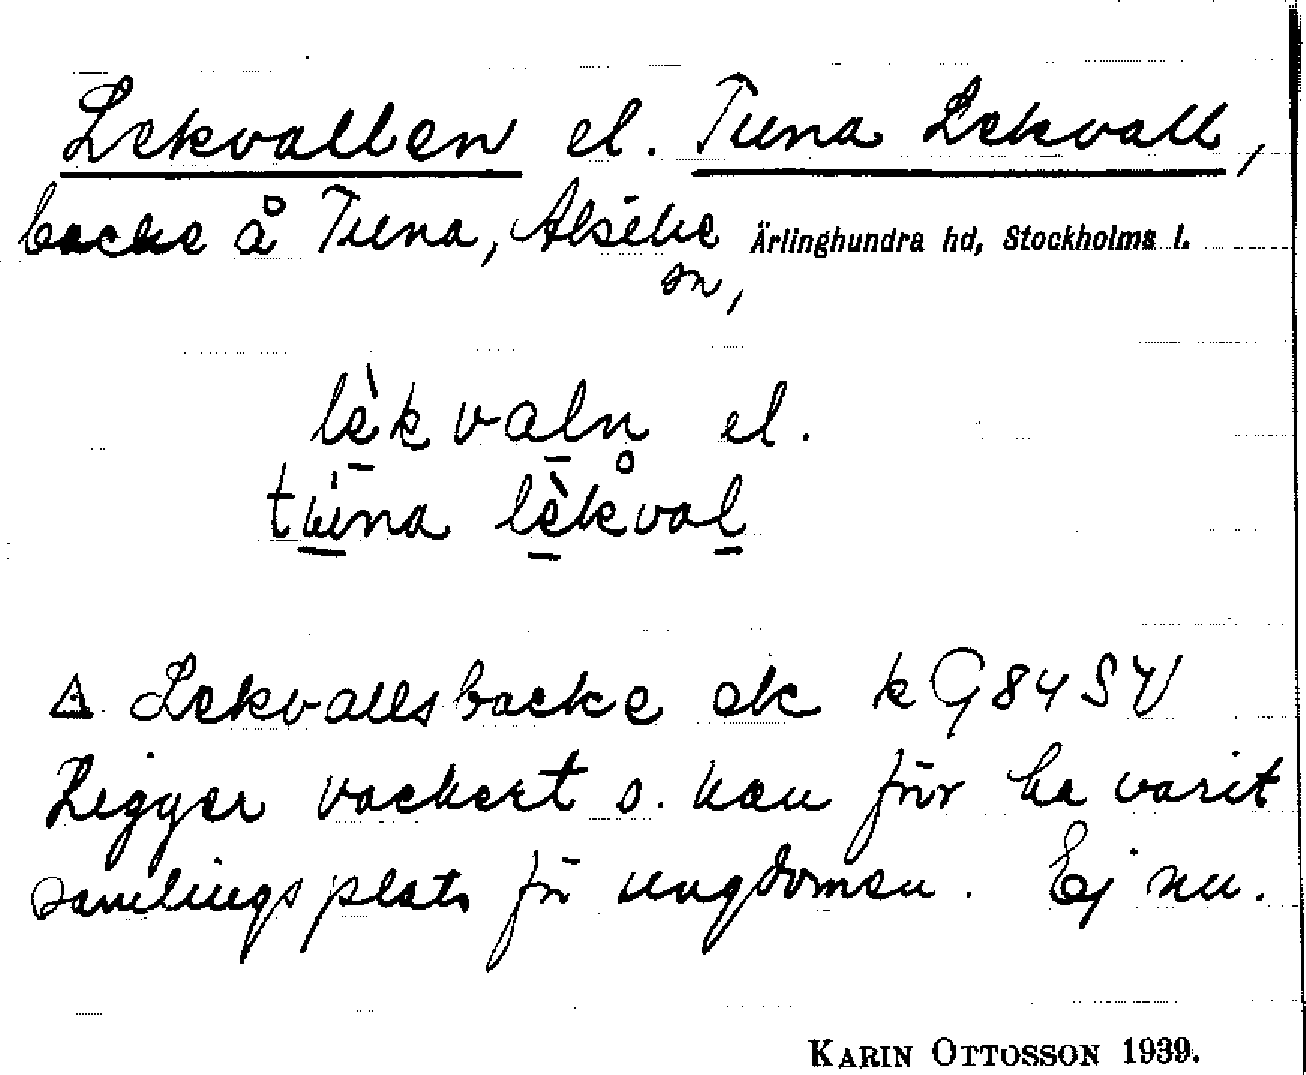 Lekvallen el. Tuna Lekvall,
backe å Tuna, Alsike Ärlinghundra hd, Stockholms l.
sn,
lèkvaln el.
tùna lèkval
Lekvallsbacke ek k G 84 SV
Ligger vackert o. kan förr ha varit
samlingsplats för ungdomen. Ej nu.
KARIN OTTOSSON 1939.